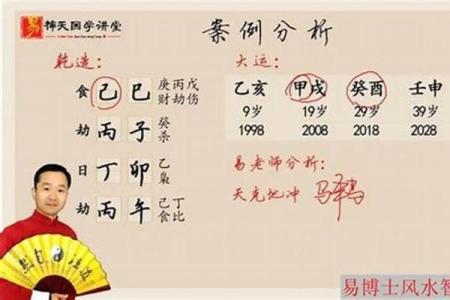 易 择天国学讲堂
案例分析
乾造：
食 己 巳 庚丙戊
财劫伤
劫 丙 子 癸
杀
日 丁 卯 乙
枭
劫 丙 午 己丁
食比
大运：
乙亥 甲戌 癸酉 壬申
9岁 19岁 29岁 39岁
1998 2008 2018 2028
易老师分析：
天克地冲
易博士风水智